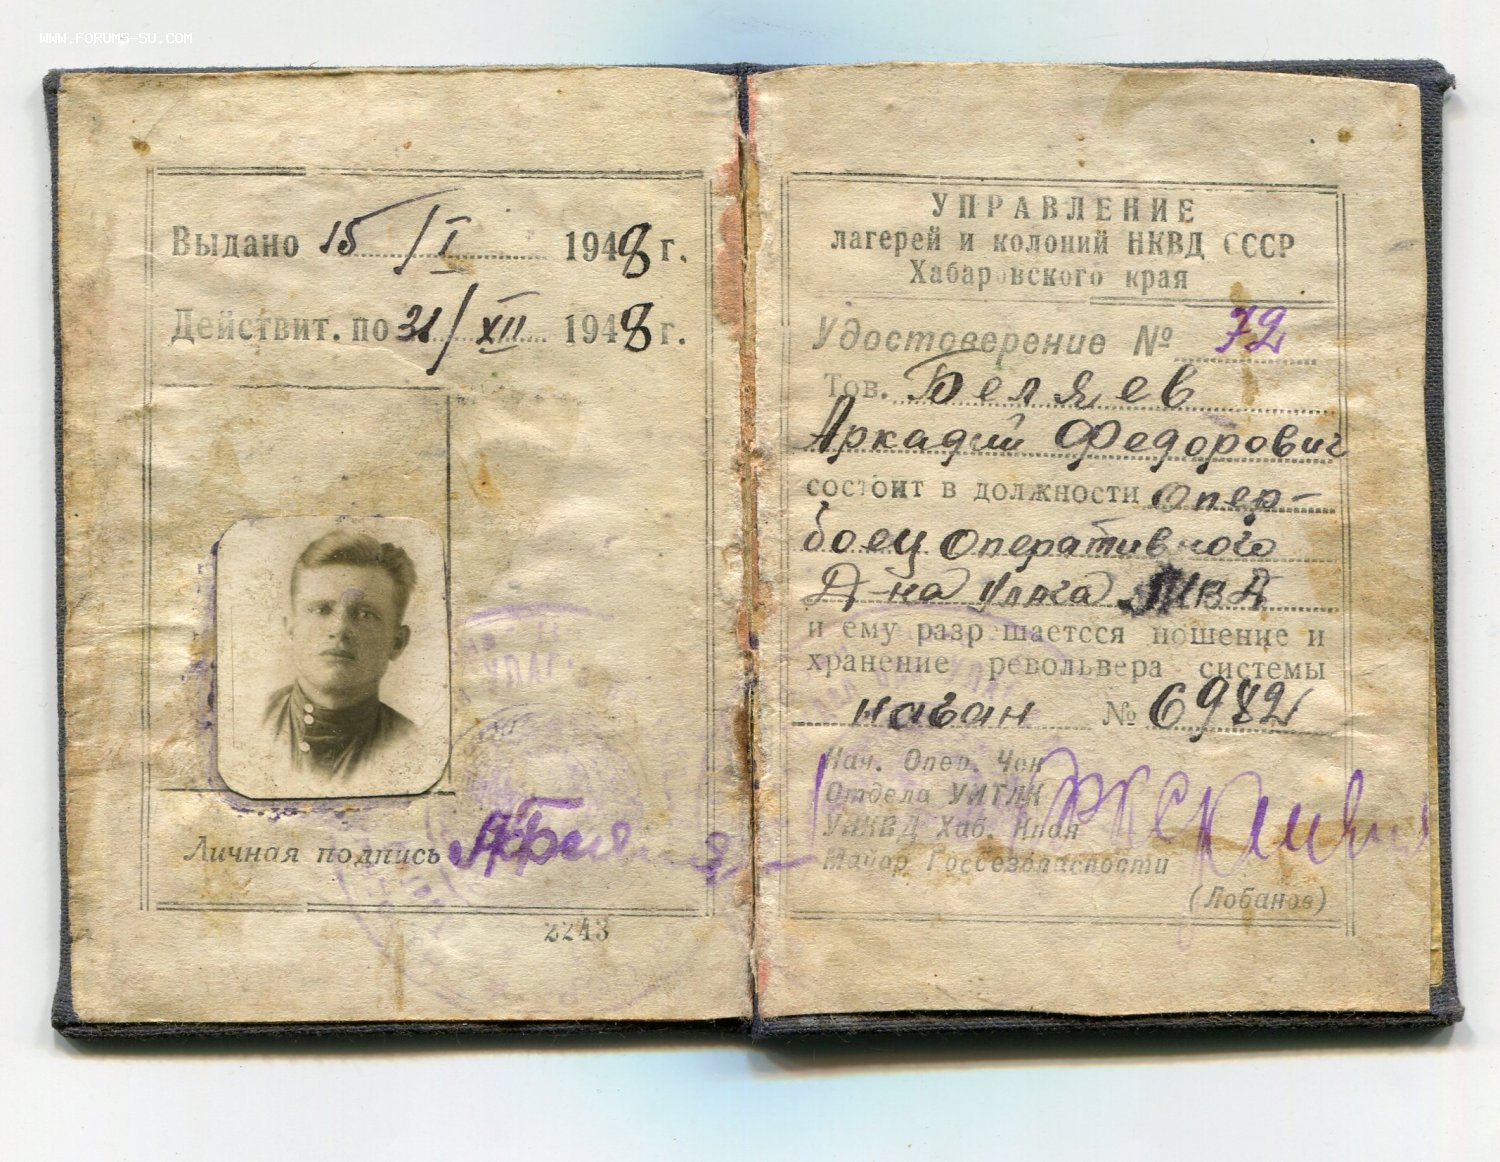 WWW.FORUMS-SU.COM
Выдано 15/I 1948 г.
Действит. по 31/XII 1948 г.
Личная подпись АБеля
2243
УПРАВЛЕНИЕ
лагерей и колоний НКВД СССР
Хабаровского края
Удостоверение № 72
Тов. Беляев
Аркадий Федорович
состоит в должности опер-
боец оперативного
Д-на МВД
и ему разрешается ношение и
хранение револьвера системы
наган № 6982
Нач. Опер. Чек
Отдела УИТЛК
УНКВД Хаб. Края
Майор Госбезопасности
(Лобанов)